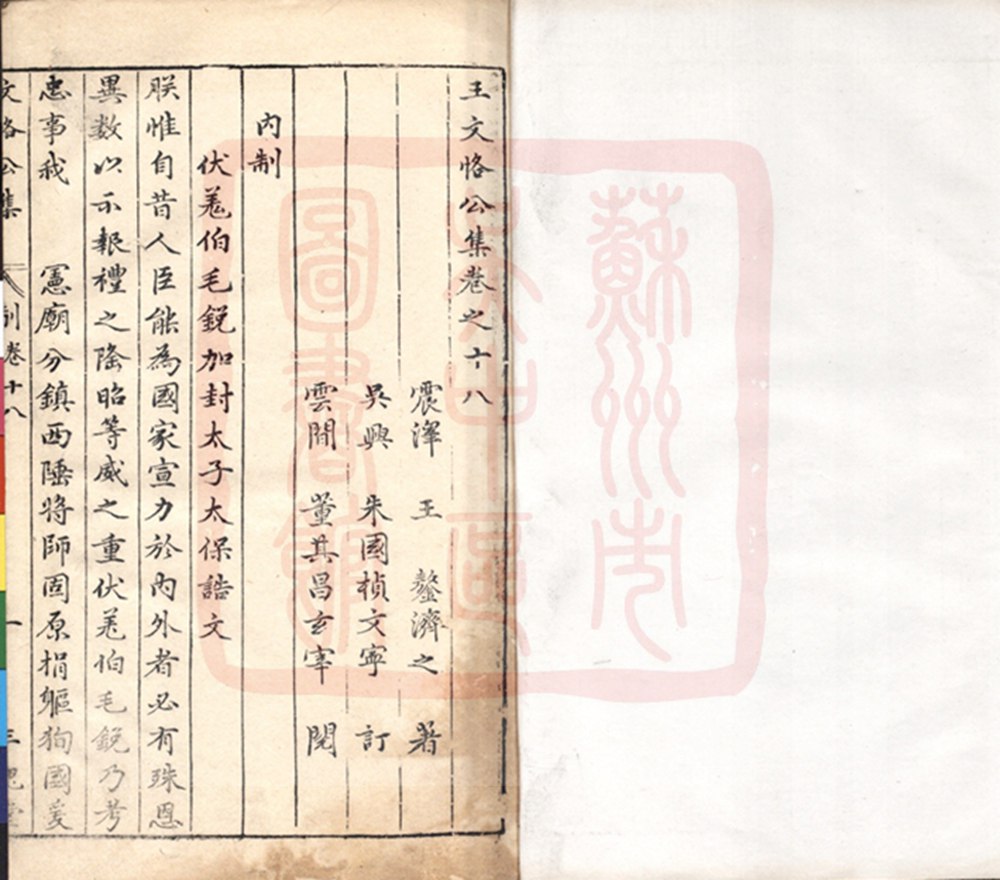 王文恪公集卷之十八
震澤 王 鏊濟之 著
吳興 朱國楨文寧 訂
雲間 董其昌玄宰 閱
內制
伏羗伯毛銳加封太子太保誥文
朕惟自昔人臣能為國家宣力於內外者必有殊恩
異數以示報禮之隆昭等威之重伏羗伯毛銳乃考
忠事我 憲廟分鎮西陲將師固原捐軀狥國爰
文恪公集 制卷十八 一 三槐堂
蘇州市
吳中區
圖書館